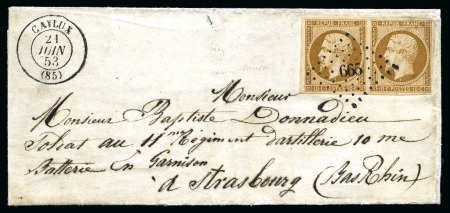 CAYLUX
21
JUIN
53
(85)
REPUB. FRANC. REPUB. FRANC.
665
10 C. POSTES 10 C.
Monsieur
Monsieur Baptiste Donnadieu
au 11me Régiment d'artillerie 10 me
Batterie en Garnison
à Strasbourg (Bas Rhin)